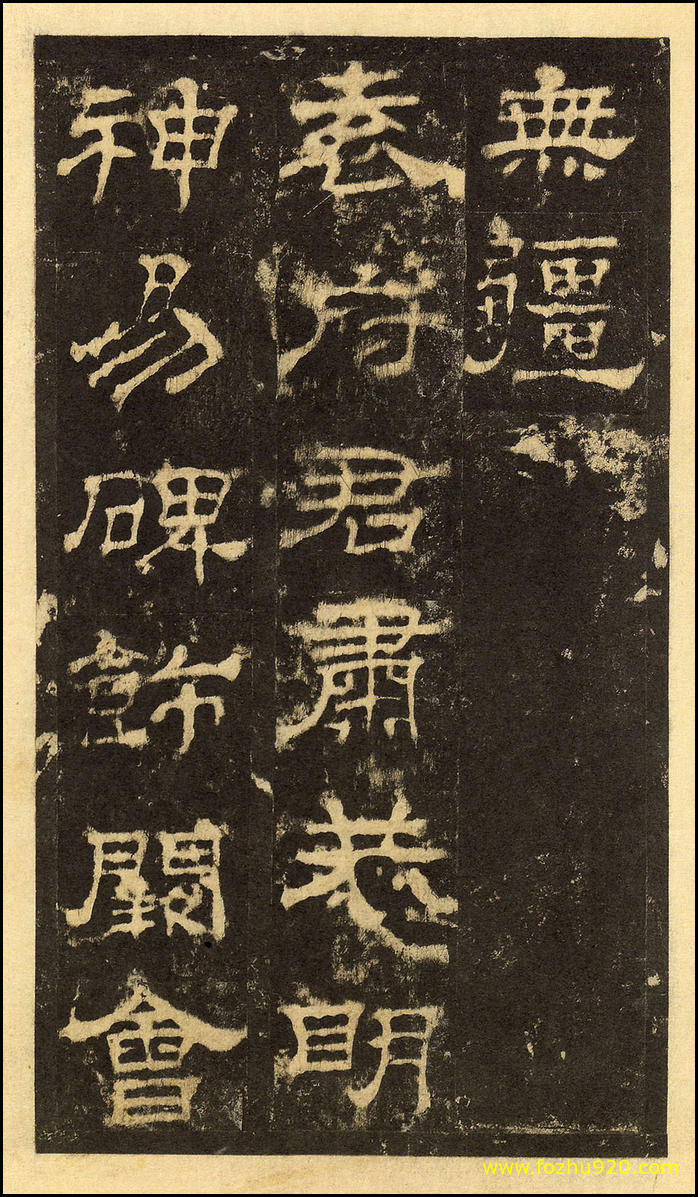 無疆
袁府君肅恭明
神易碑飾闕會
www.fozhu920.com